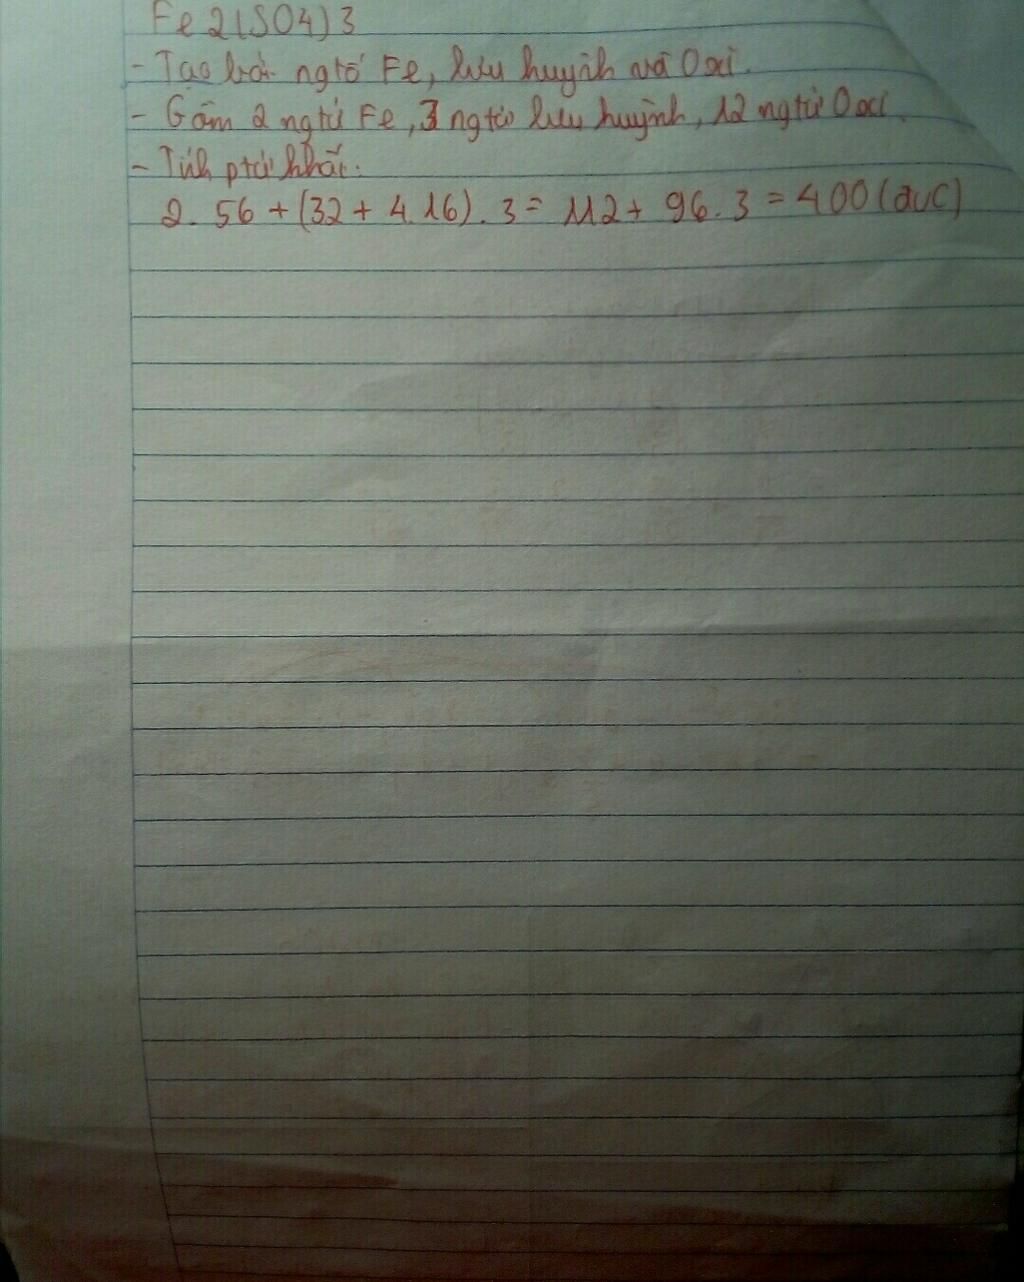 Fe2(SO4)3
- Tạo bởi ngtố Fe, lưu huỳnh và Oxi.
- Gồm 2 ngtử Fe, 3 ngtử lưu huỳnh, 12 ngtử Oxi.
- Tính ptử khối.
2. 56 + (32 + 4.16) . 3 = 112 + 96. 3 = 400 (đvC)